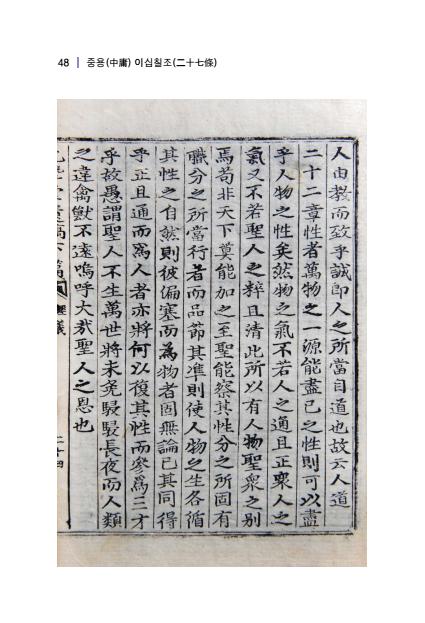 48 | 중용(中庸) 이십칠조(二十七條)
人由教而致乎誠即人之所當自道也故云人道
二十二章性者萬物之一源能盡己之性則可以盡
乎人物之性矣然物之氣不若人之通且正衆人之
氣又不若聖人之粹且清此所以有人物聖衆之別
焉苟非天下莫能加之至聖能察其性分之所固有
職分之所當行者而品節其準則使人物之生各循
其性之自然則彼偏塞而為物者固無論已其同得
乎正且通而為人者亦將何以復其性而參爲三才
乎故愚謂聖人不生萬世將未免駸駸長夜而人類
之違禽獸不遠嗚呼大哉聖人之恩也
經義
二十四